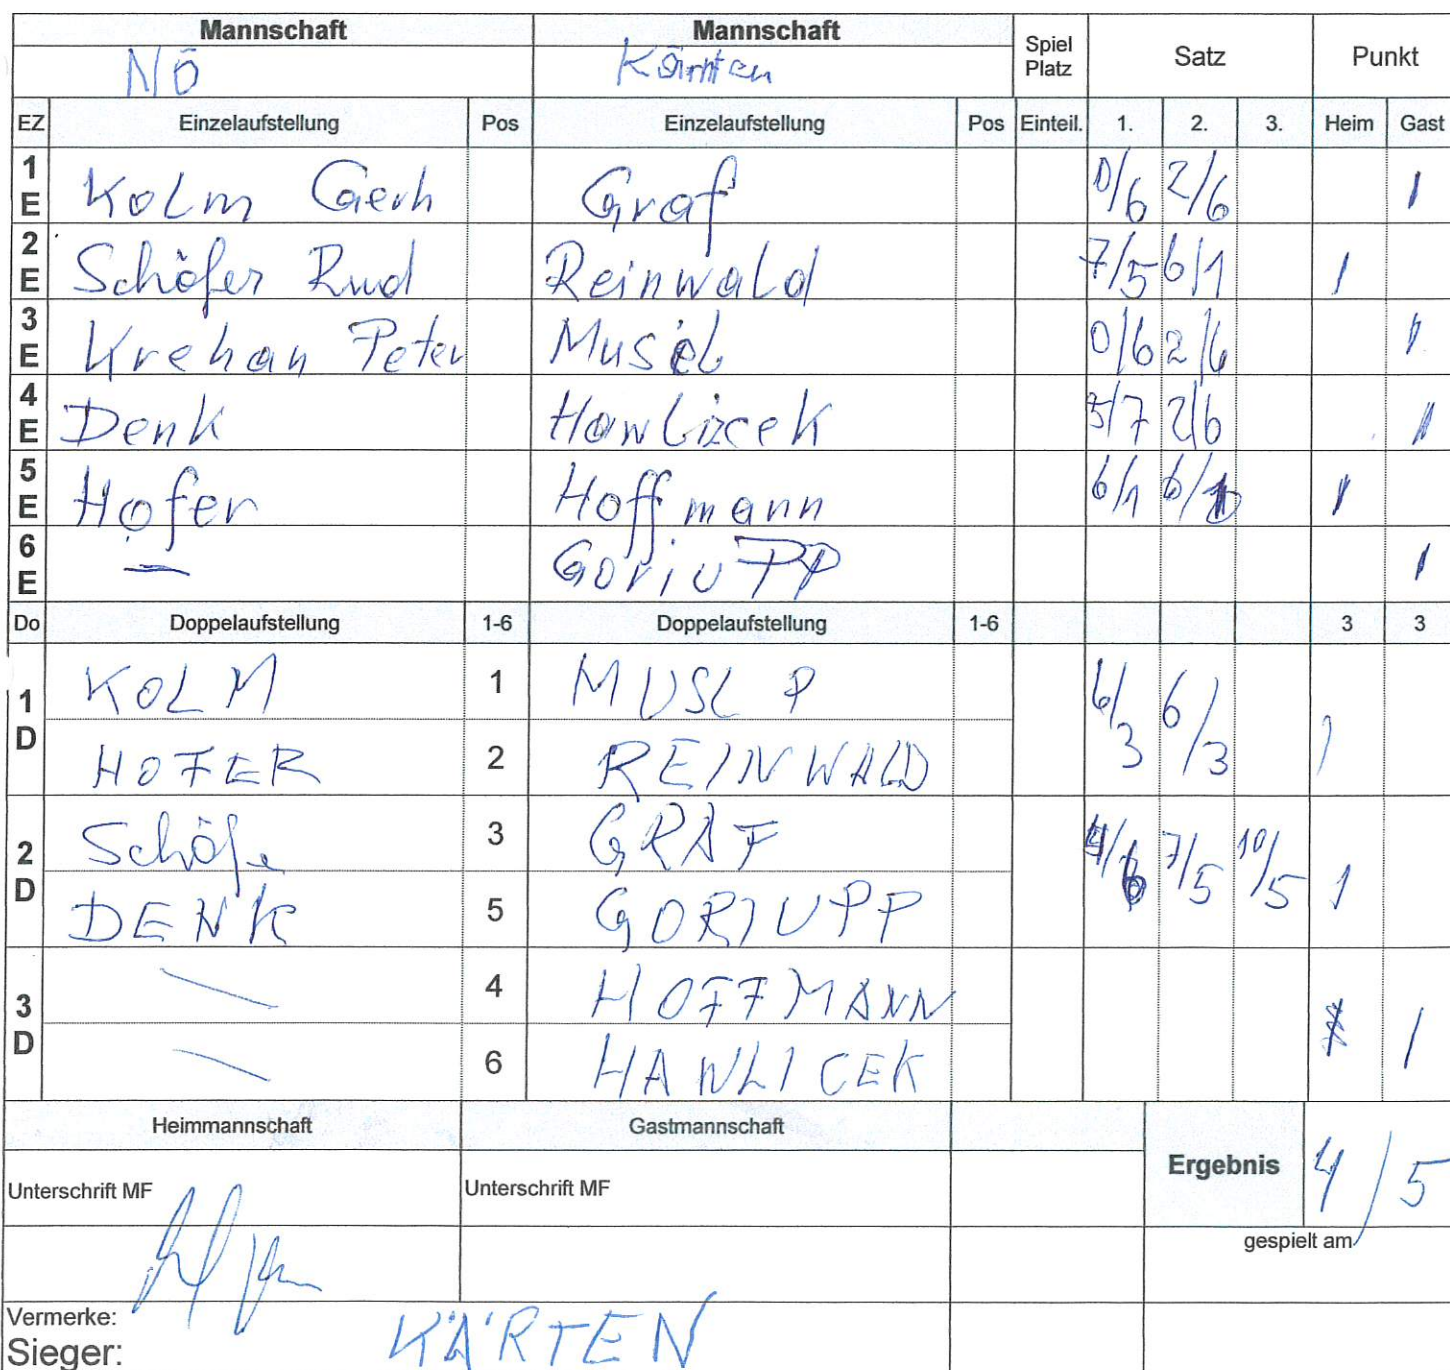 Mannschaft Mannschaft Spiel Platz Satz Punkt
NÖ Kärnten
EZ Einzelaufstellung Pos Einzelaufstellung Pos Einteil. 1. 2. 3. Heim Gast
1 E Kolm Gerh Graf 0/6 2/6 1
2 E Schöfer Rud Reinwald 7/5 6/1 1
3 E Krehan Peter Musel 0/6 2/6 1
4 E Denk Hawlizcek 5/7 2/6 1
5 E Hofer Hoffmann 6/1 1
6 E — GoriuPP 1
Do Doppelaufstellung 1-6 Doppelaufstellung 1-6 3 3
1 D KOLM 1 MUSL P 6/3 6/3 1
HOFER 2 REINWALD
2 D Schöfe 3 GRAF 4/6 7/5 10/5 1
DENK 5 GORIUPP
3 D 4 HOFFMANN 1
6 HAWLICEK
Heimmannschaft Gastmannschaft
Unterschrift MF Unterschrift MF Ergebnis 4/5
gespielt am
Vermerke:
Sieger: KÄRTEN